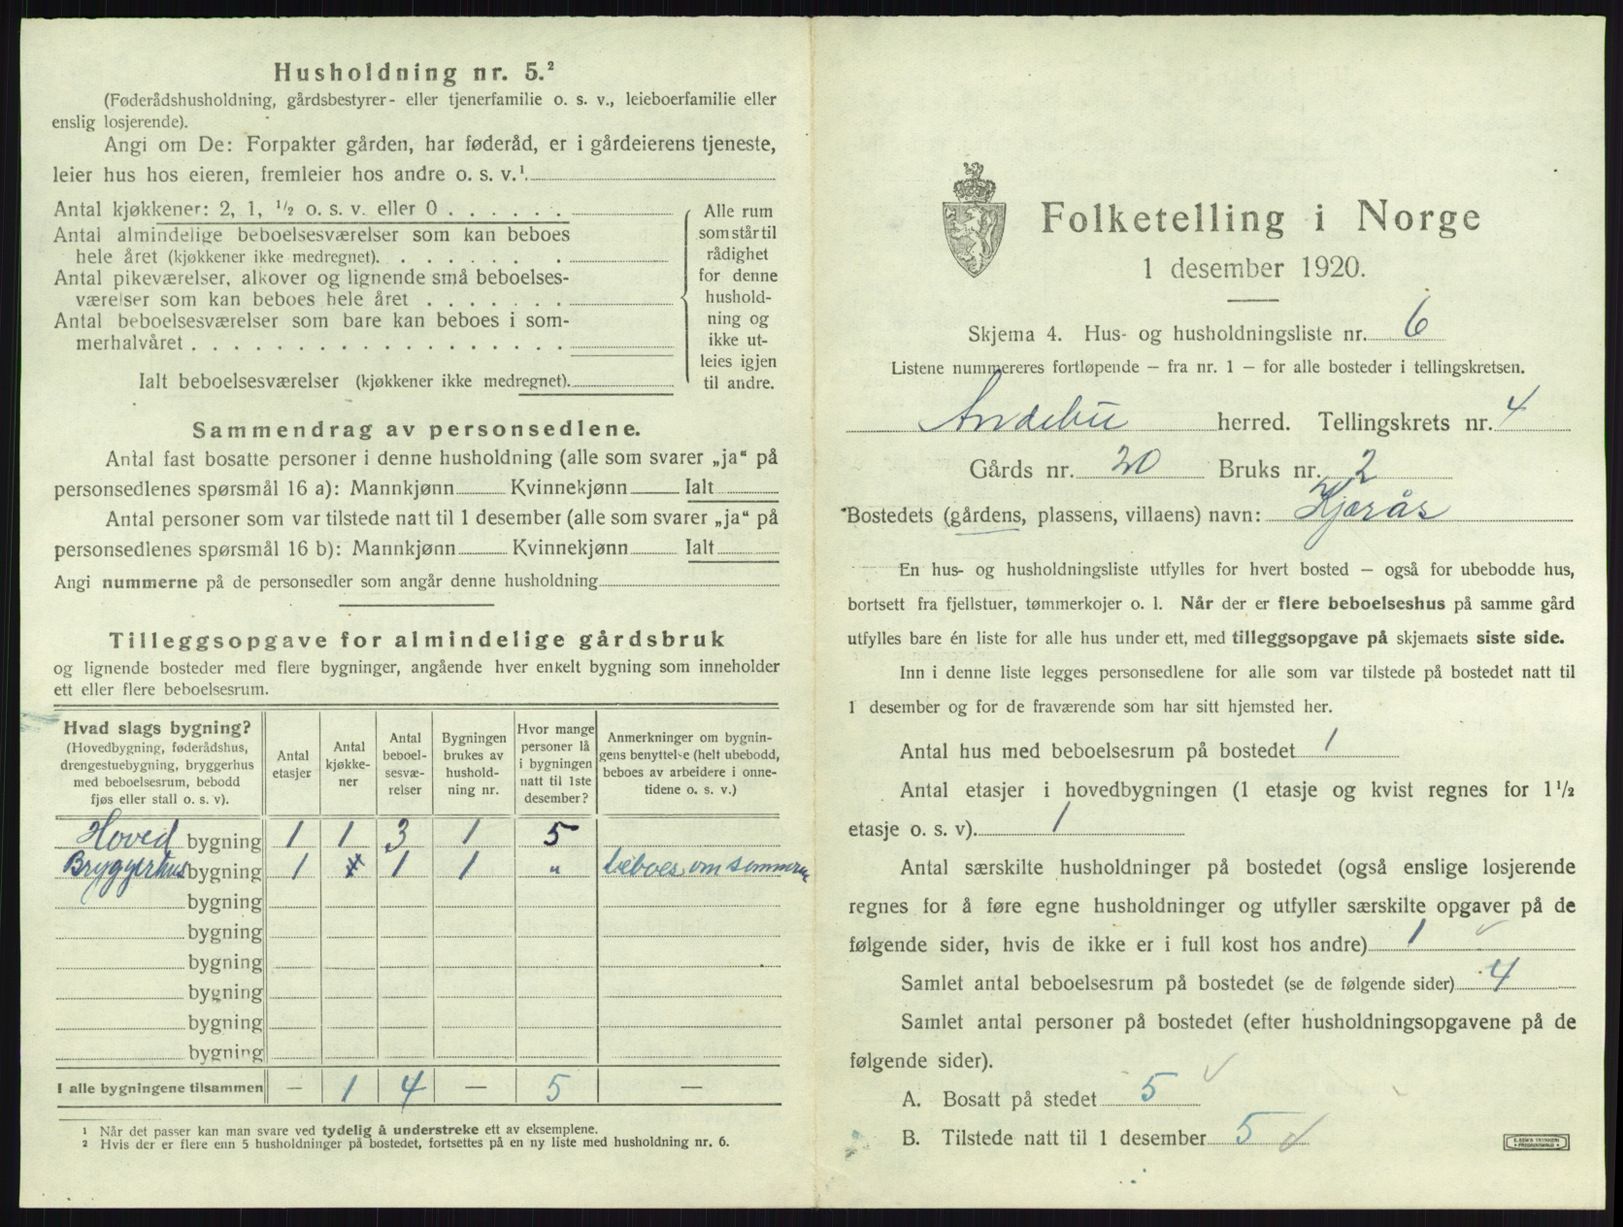 Husholdning nr. 5.²
(Føderådshusholdning, gårdsbestyrer- eller tjenerfamilie o. s. v., leieboerfamilie eller
enslig losjerende).
Angi om De: Forpakter gården, har føderåd, er i gårdeierens tjeneste,
leier hus hos eieren, fremleier hos andre o. s. v.¹
Antal kjøkkener: 2, 1, ½ o. s. v. eller 0
Antal almindelige beboelsesværelser som kan beboes
hele året (kjøkkener ikke medregnet)
Antal pikeværelser, alkover og lignende små beboelses-
værelser som kan beboes hele året
Antal beboelsesværelser som bare kan beboes i som-
merhalvåret
Ialt beboelsesværelser (kjøkkener ikke medregnet)
Alle rum
som står til
rådighet
for denne
hushold-
ning og
ikke ut-
leies igjen
til andre.
Sammendrag av personsedlene.
Antal fast bosatte personer i denne husholdning (alle som svarer „ja“ på
personsedlenes spørsmål 16 a): Mannkjønn Kvinnekjønn Ialt
Antal personer som var tilstede natt til 1 desember (alle som svarer „ja“ på
personsedlenes spørsmål 16 b): Mannkjønn Kvinnekjønn Ialt
Angi nummerne på de personsedler som angår denne husholdning
Tilleggsopgave for almindelige gårdsbruk
og lignende bosteder med flere bygninger, angående hver enkelt bygning som inneholder
ett eller flere beboelsesrum.
Hvad slags bygning?
(Hovedbygning, føderådshus,
drengestuebygning, bryggerhus
med beboelsesrum, bebodd
fjøs eller stall o. s. v).
Antal
etasjer
Antal
kjøkke-
ner
Antal
beboel-
sesvæ-
relser
Bygningen
brukes av
hushold-
ning nr.
Hvor mange
personer lå
i bygningen
natt til 1ste
desember?
Anmerkninger om bygnin-
gens benyttelse (helt ubebodd,
beboes av arbeidere i onne-
tidene o. s. v.)
Hoved bygning 1 1 3 1 5
Bryggerhus bygning 1 1 1 „ beboes om sommeren
bygning
bygning
bygning
bygning
bygning
bygning
I alle bygningene tilsammen — 1 4 — 5 —
¹ Når det passer kan man svare ved tydelig å understreke ett av eksemplene.
² Hvis der er flere enn 5 husholdninger på bostedet, fortsettes på en ny liste med husholdning nr. 6.
Folketelling i Norge
1 desember 1920.
Skjema 4. Hus- og husholdningsliste nr. 6
Listene nummereres fortløpende — fra nr. 1 — for alle bosteder i tellingskretsen.
Andebu herred. Tellingskrets nr. 4
Gårds nr. 20 Bruks nr. 2
Bostedets (gårdens, plassens, villaens) navn: Kjærås
En hus- og husholdningsliste utfylles for hvert bosted — også for ubebodde hus,
bortsett fra fjellstuer, tømmerkojer o. l. Når der er flere beboelseshus på samme gård
utfylles bare én liste for alle hus under ett, med tilleggsopgave på skjemaets siste side.
Inn i denne liste legges personsedlene for alle som var tilstede på bostedet natt til
1 desember og for de fraværende som har sitt hjemsted her.
Antal hus med beboelsesrum på bostedet 1
Antal etasjer i hovedbygningen (1 etasje og kvist regnes for 1½
etasje o. s. v). 1
Antal særskilte husholdninger på bostedet (også enslige losjerende
regnes for å føre egne husholdninger og utfyller særskilte opgaver på de
følgende sider, hvis de ikke er i full kost hos andre) 1
Samlet antal beboelsesrum på bostedet (se de følgende sider) 4
Samlet antal personer på bostedet (efter husholdningsopgavene på de
følgende sider).
A. Bosatt på stedet 5
B. Tilstede natt til 1 desember 5